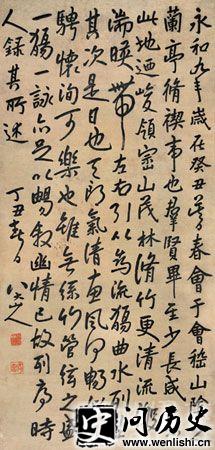 永和九年歲在癸丑暮春會于會稽山陰
蘭亭脩禊事也羣賢畢至少長咸
此地迺峻領崇山茂林脩竹更清流激
湍暎帶左右引以為流觴曲水列
其次是日也天朗氣清惠風和暢
騁懷洵可樂也雖無絲竹管弦之盛
一觴一詠亦足以暢敘幽情已故列序時
人錄其所述
丁丑春日
八大山人
中问历史
www.wenlishi.cn